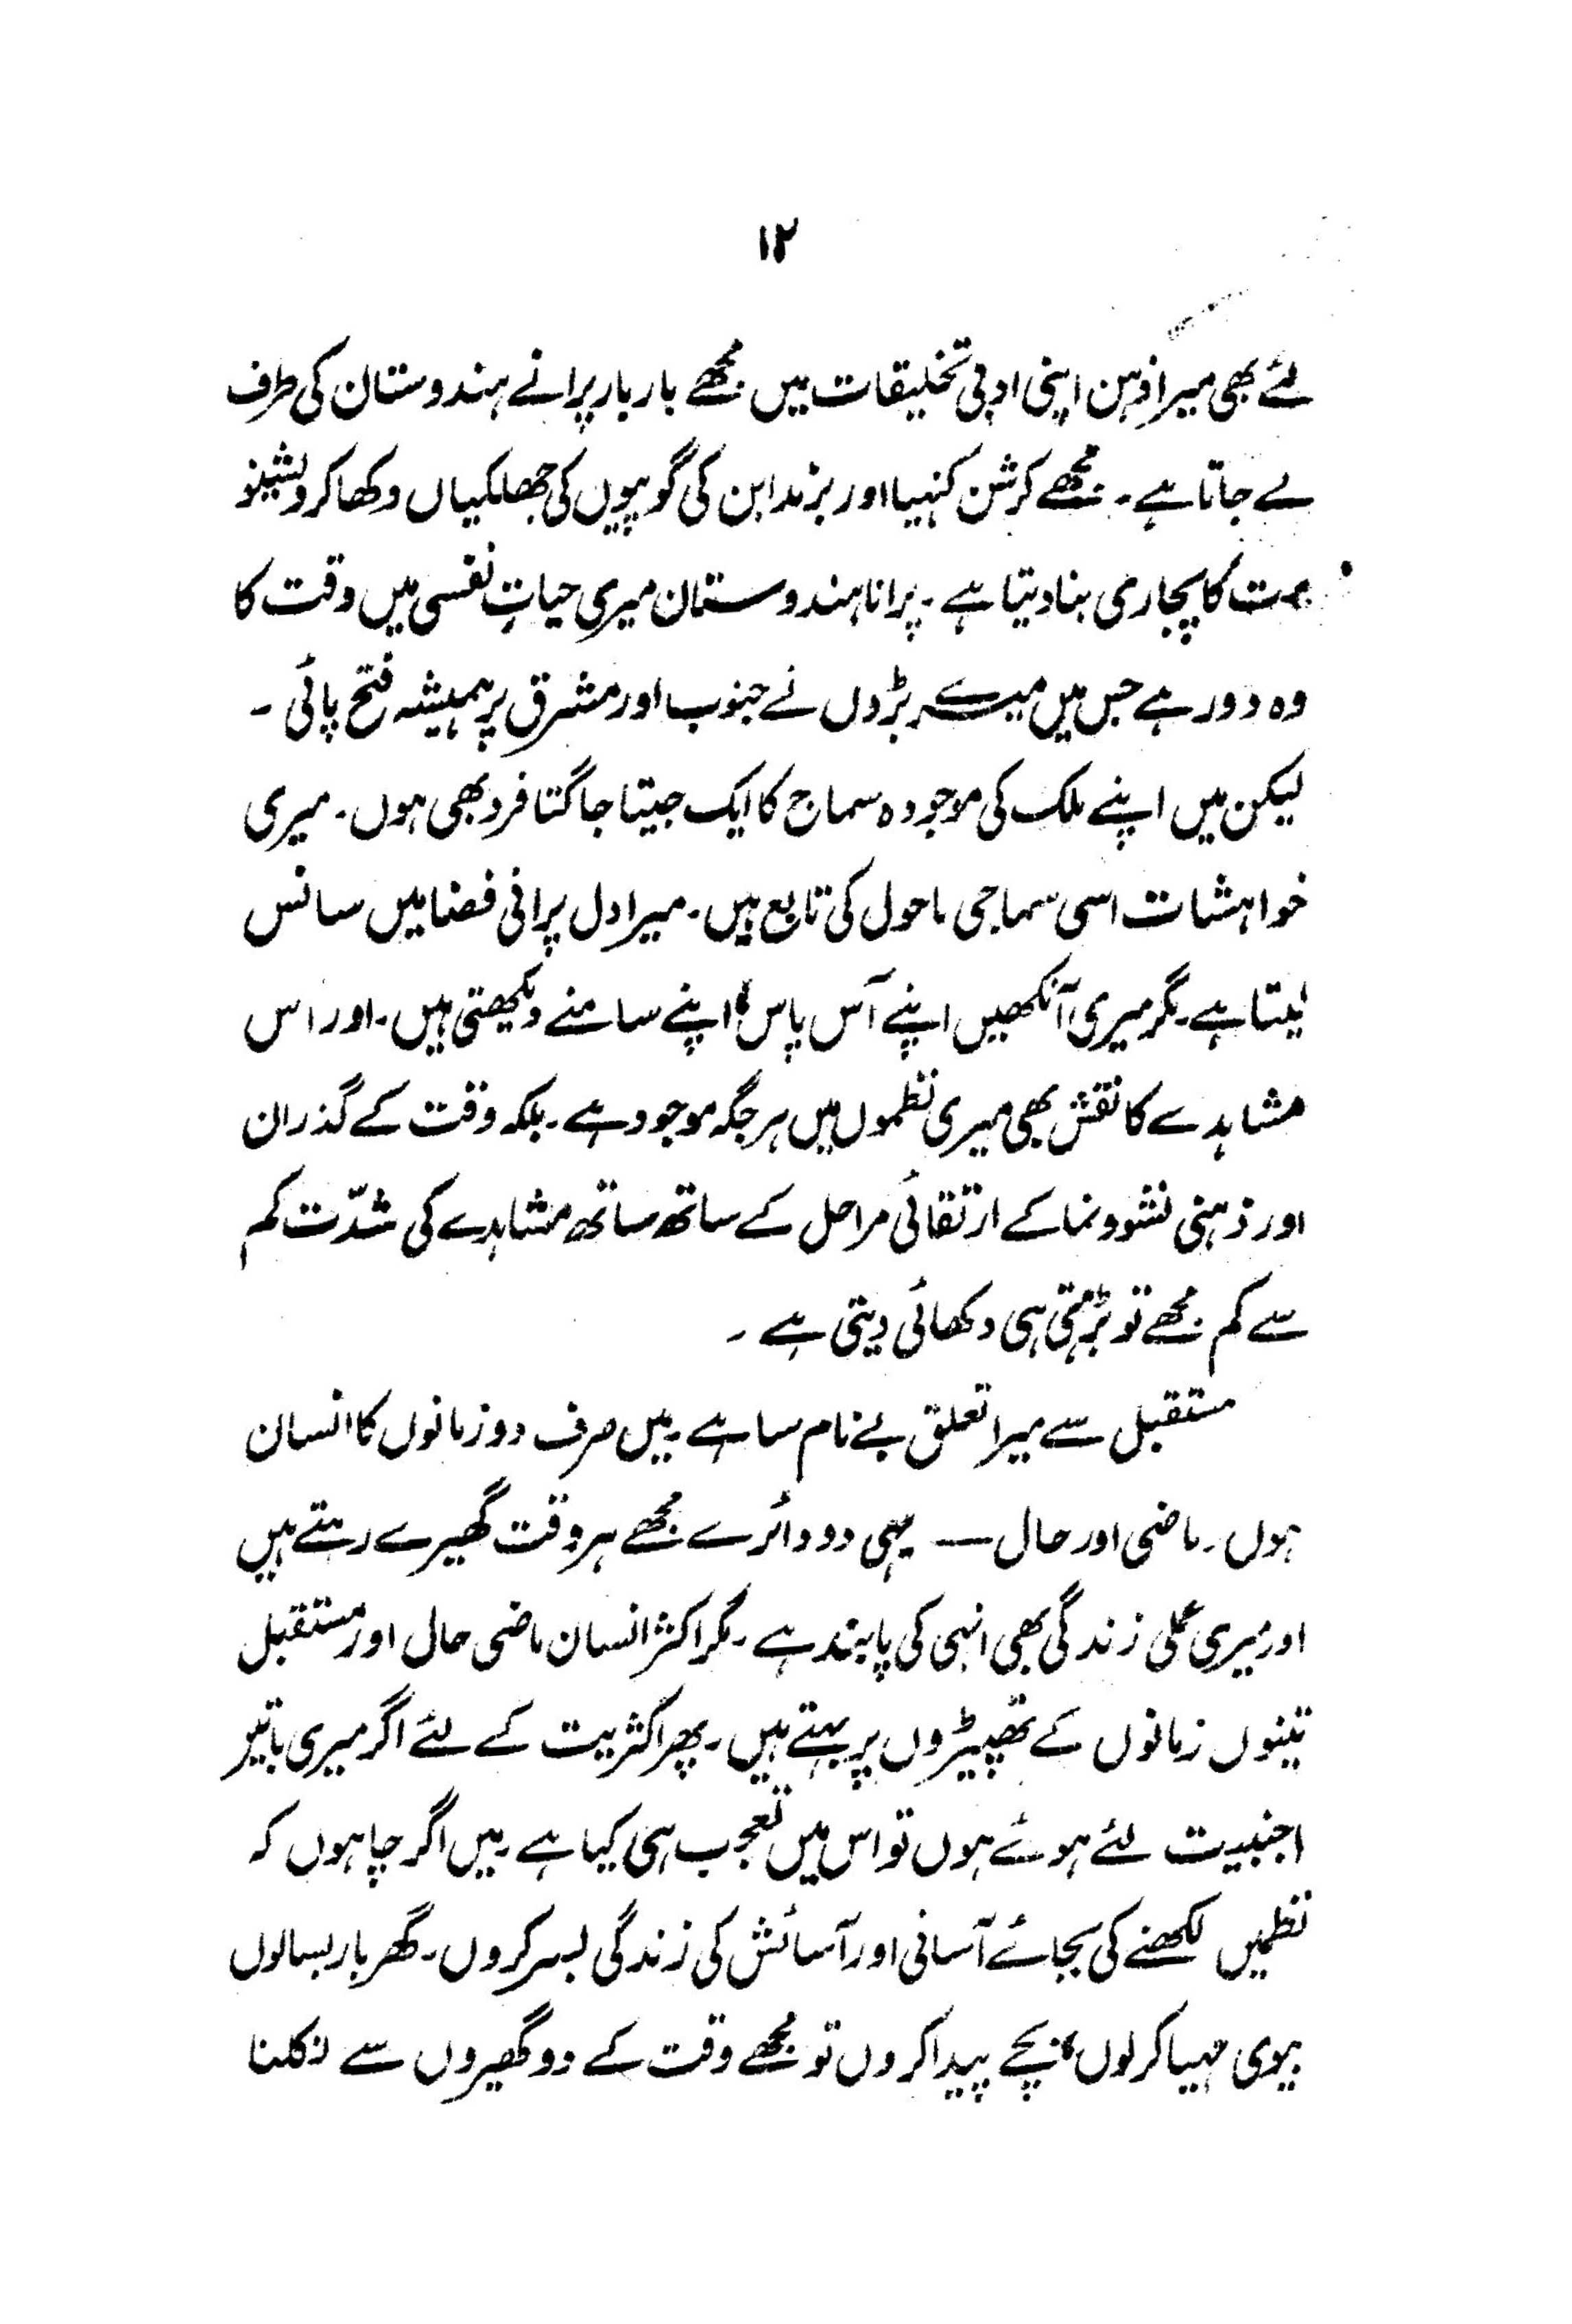 ۱۲
لئے بھی میرا ذہن اپنی ادبی تخلیقات میں مجھے بار بار پرانے ہندوستان کی طرف
لے جاتا ہے۔ مجھے کرشن کنہیا اور بزندابن کی گوپیوں کی جھلکیاں دکھا کر ویشنو
مت کا پجاری بنا دیتا ہے۔ پرانا ہندوستان میری حیاتِ نفسی میں وقت کا
وہ دور ہے جس میں میرے بڑوں نے جنوب اور مشرق پر ہمیشہ فتح پائی۔
لیکن میں اپنے ملک کی موجودہ سماج کا ایک جیتا جاگتا فرد بھی ہوں۔ میری
خواہشات اسی سماجی ماحول کی تابع ہیں۔ میرا دل پرانی فضا میں سانس
لیتا ہے۔ مگر میری آنکھیں اپنے آس پاس، اپنے سامنے دیکھتی ہیں۔ اور اس
مشاہدے کا نقش بھی میری نظموں میں ہر جگہ موجود ہے۔ بلکہ وقت کے گذران
اور ذہنی نشوونما کے ارتقائی مراحل کے ساتھ ساتھ مشاہدے کی شدّت کم
سے کم مجھے تو بڑھتی ہی دکھائی دیتی ہے۔
مستقبل سے میرا تعلق بے نام سا ہے۔ میں صرف دو زمانوں کا انسان
ہوں۔ ماضی اور حال — یہی دو دائرے مجھے ہر وقت گھیرے رہتے ہیں
اور میری عملی زندگی بھی انہی کی پابند ہے۔ مگر اکثر انسان ماضی حال اور مستقبل
تینوں زمانوں کے تھپیڑوں پر بہتے ہیں۔ پھر اکثریت کے لئے اگر میری باتیں
اجنبیت لئے ہوئے ہوں تو اس میں تعجب ہی کیا ہے۔ میں اگر چاہوں کہ
نظمیں لکھنے کی بجائے آسانی اور آسائش کی زندگی بسر کروں۔ گھر بار بسا لوں
بیوی مہیا کر لوں، بچے پیدا کروں تو مجھے وقت کے دو گھیروں سے نکلنا